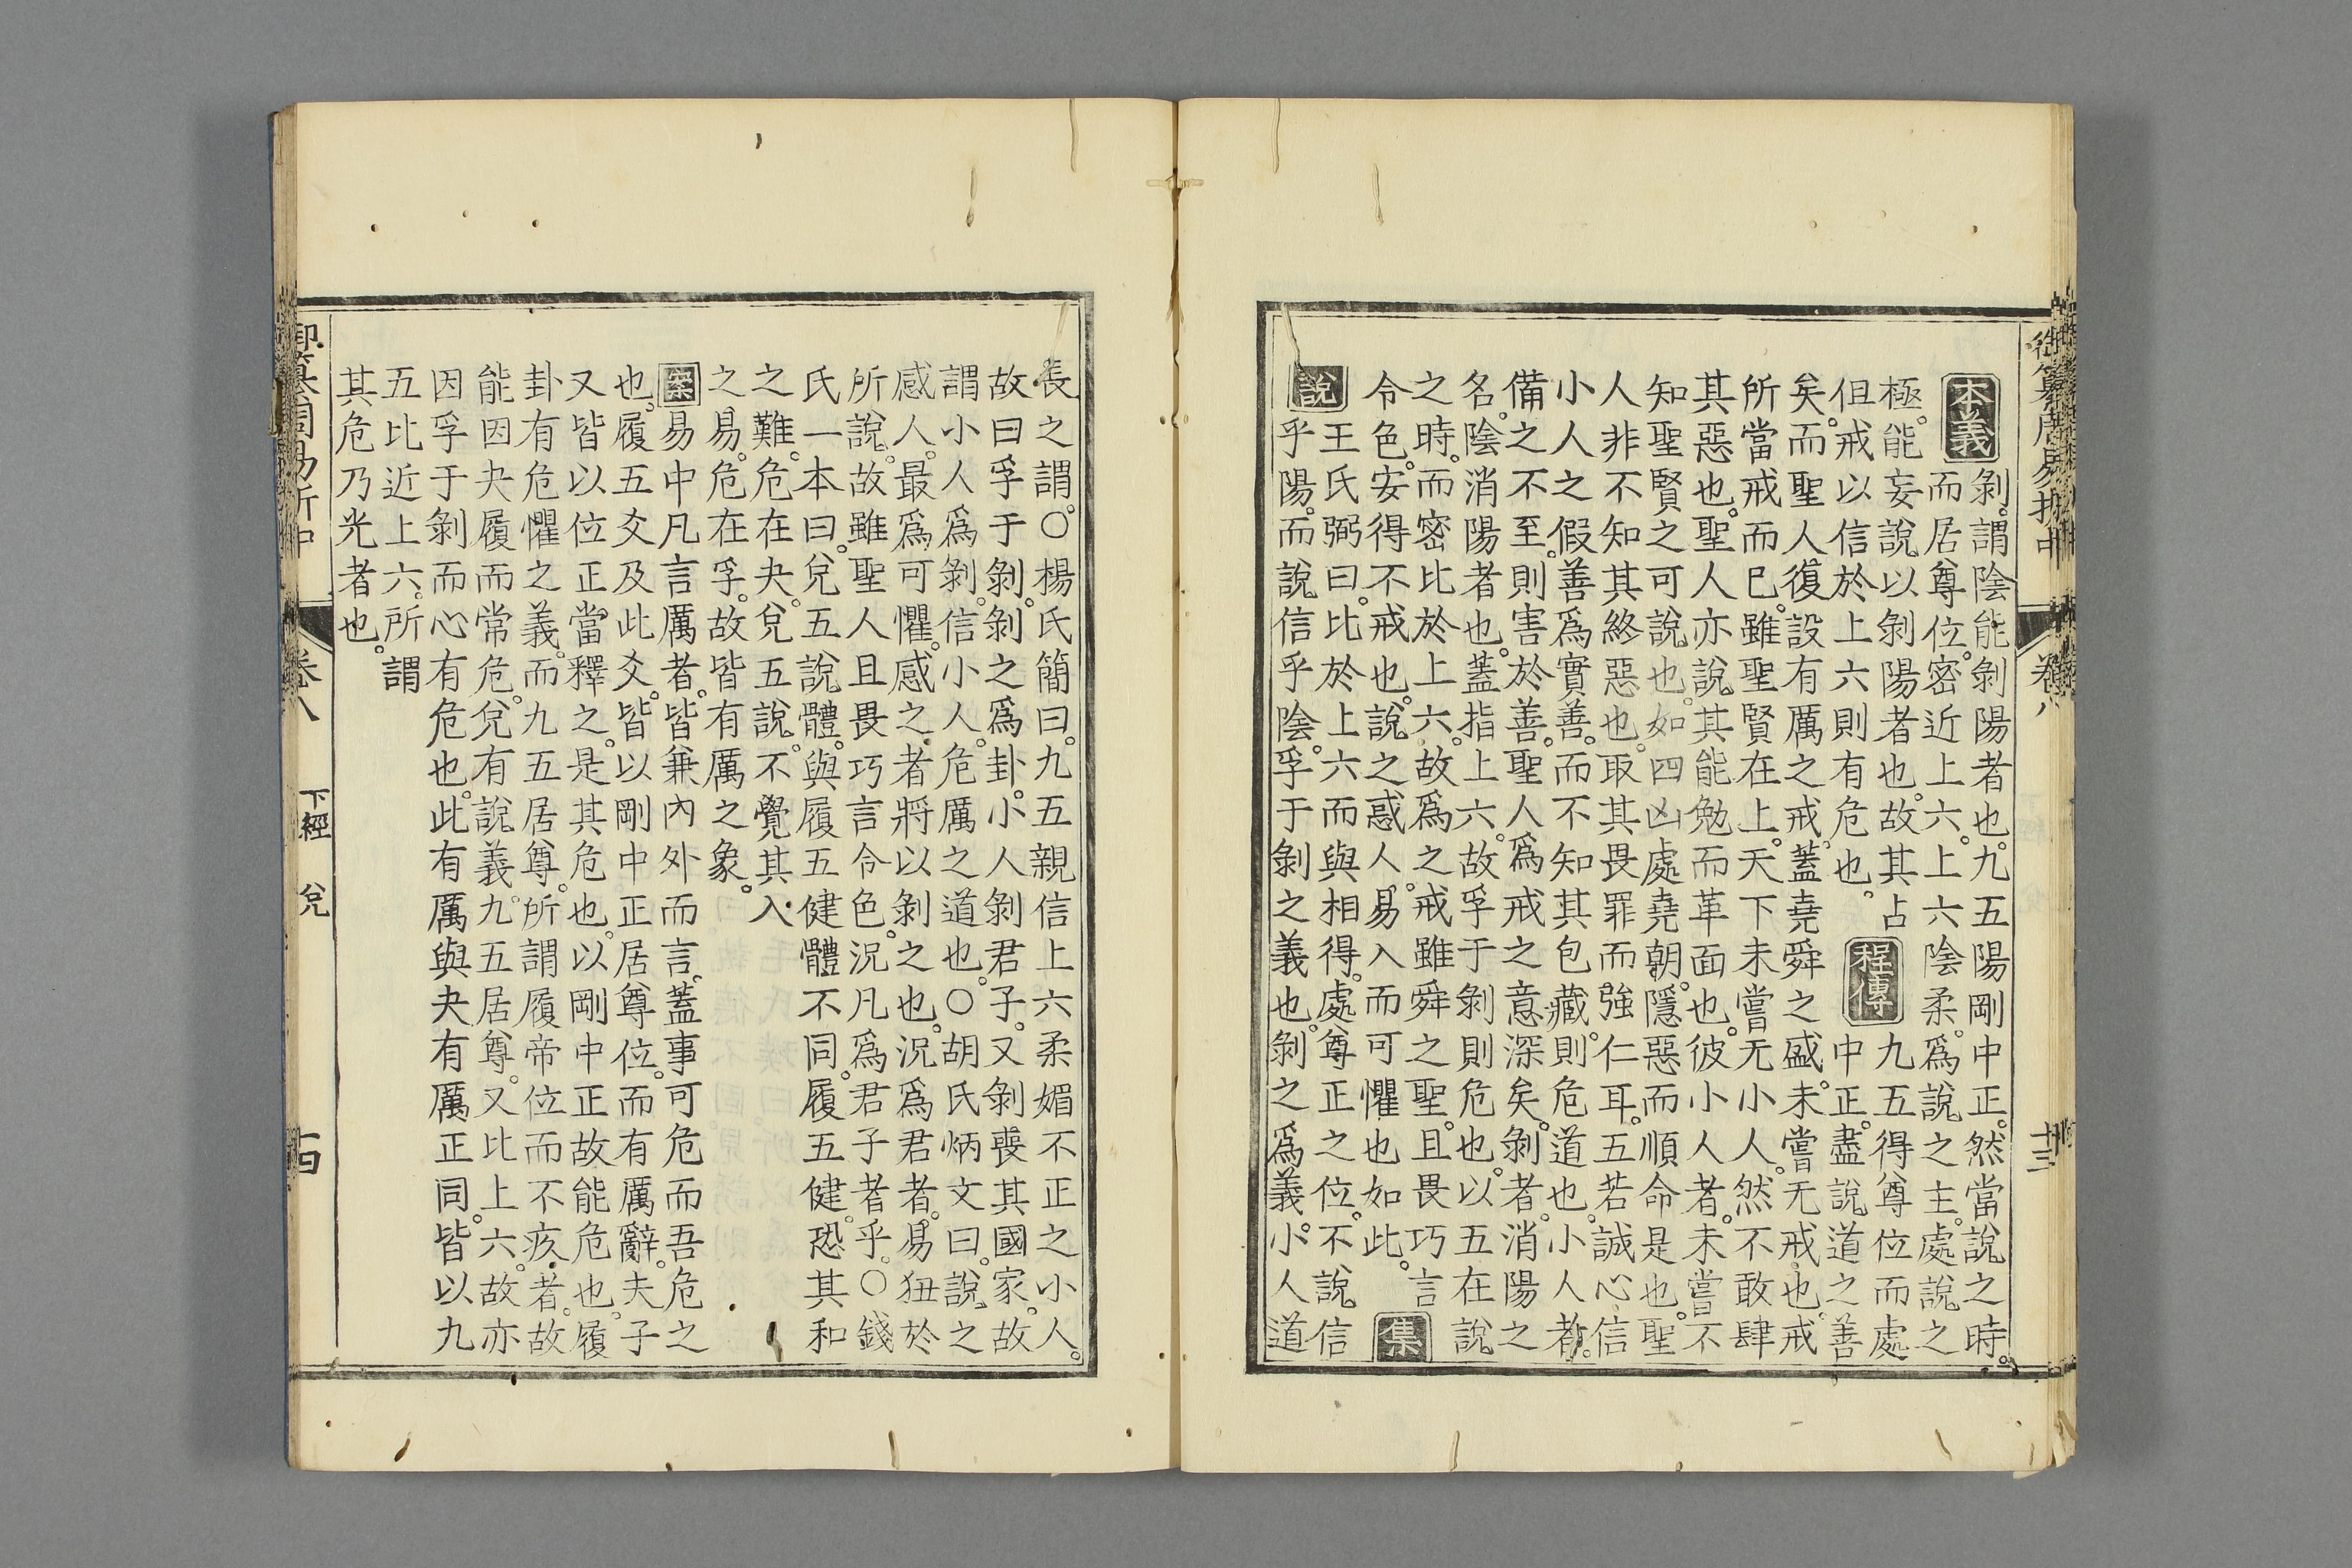 御纂周易折中 卷八 十三
本義 剝。謂陰能剝陽者也。九五陽剛中正。然當說之時。
而居尊位。密近上六。上六陰柔。爲說之主。處說之
極。能妄說以剝陽者也。故其占 程傳 九五得尊位而處
但戒以信於上六。則有危也。 中正。盡說道之善
矣。而聖人復設有厲之戒。蓋堯舜之盛。未嘗无戒也。戒
所當戒而已。雖聖賢在上。天下未嘗无小人。然不敢肆
其惡也。聖人亦說其能勉而革面也。彼小人者。未嘗不
知聖賢之可說也。如四凶處堯朝。隱惡而順命是也。聖
人非不知其終惡也。取其畏罪而強仁耳。五若誠心信
小人之假善爲實善。而不知其包藏。則危道也。小人者。
備之不至。則害於善。聖人爲戒之意深矣。剝者。消陽之
名。陰消陽者也。蓋指上六。故孚于剝則危也。以五在說
之時。而密比於上六。故爲之戒。雖舜之聖。且畏巧言
令色。安得不戒也。說之惑人。易入而可懼也如此。 集
說 王氏弼曰。比於上六而與相得。處尊正之位。不說信
乎陽。而說信乎陰。孚于剝之義也。剝之爲義。小人道
長之謂。○楊氏簡曰。九五親信上六柔媚不正之小人。
故曰孚于剝。剝之爲卦。小人剝君子。又剝喪其國家。故
謂小人爲剝。信小人。危厲之道也。○胡氏炳文曰。說之
感人。最爲可懼。感之者將以剝之也。況爲君者。易狃於
所說。故雖聖人且畏巧言令色。況凡爲君子者乎。○錢
氏一本曰。兌五說體。與履五健體不同。履五健。恐其和
之難。危在夬。兌五說。不覺其入
之易。危在孚。故皆有厲之象。
案 易中凡言厲者。皆兼內外而言。蓋事可危而吾危之
也。履五爻及此爻。皆以剛中正居尊位。而有厲辭。夫子
又皆以位正當釋之。是其危也。以剛中正故能危也。履
卦有危懼之義。而九五居尊。所謂履帝位而不疚者。故
能因夬履而常危。兌有說義。九五居尊。又比上六。故亦
因孚于剝而心有危也。此有厲與夬有厲正同。皆以九
五比近上六。所謂
其危乃光者也。
御纂周易折中 卷八 下經 兌 十四